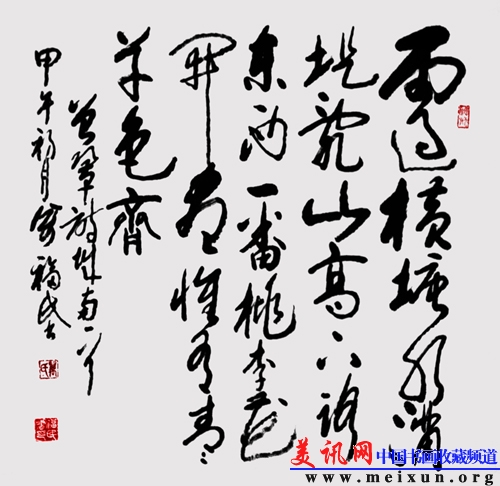 雨过横塘水满
堤乱山高下路
东西一番桃李花
开尽惟有青青
草色齐
曾巩诗城南一首
甲午初月 福民书
美讯网 中国书画收藏频道
www.meixun.org